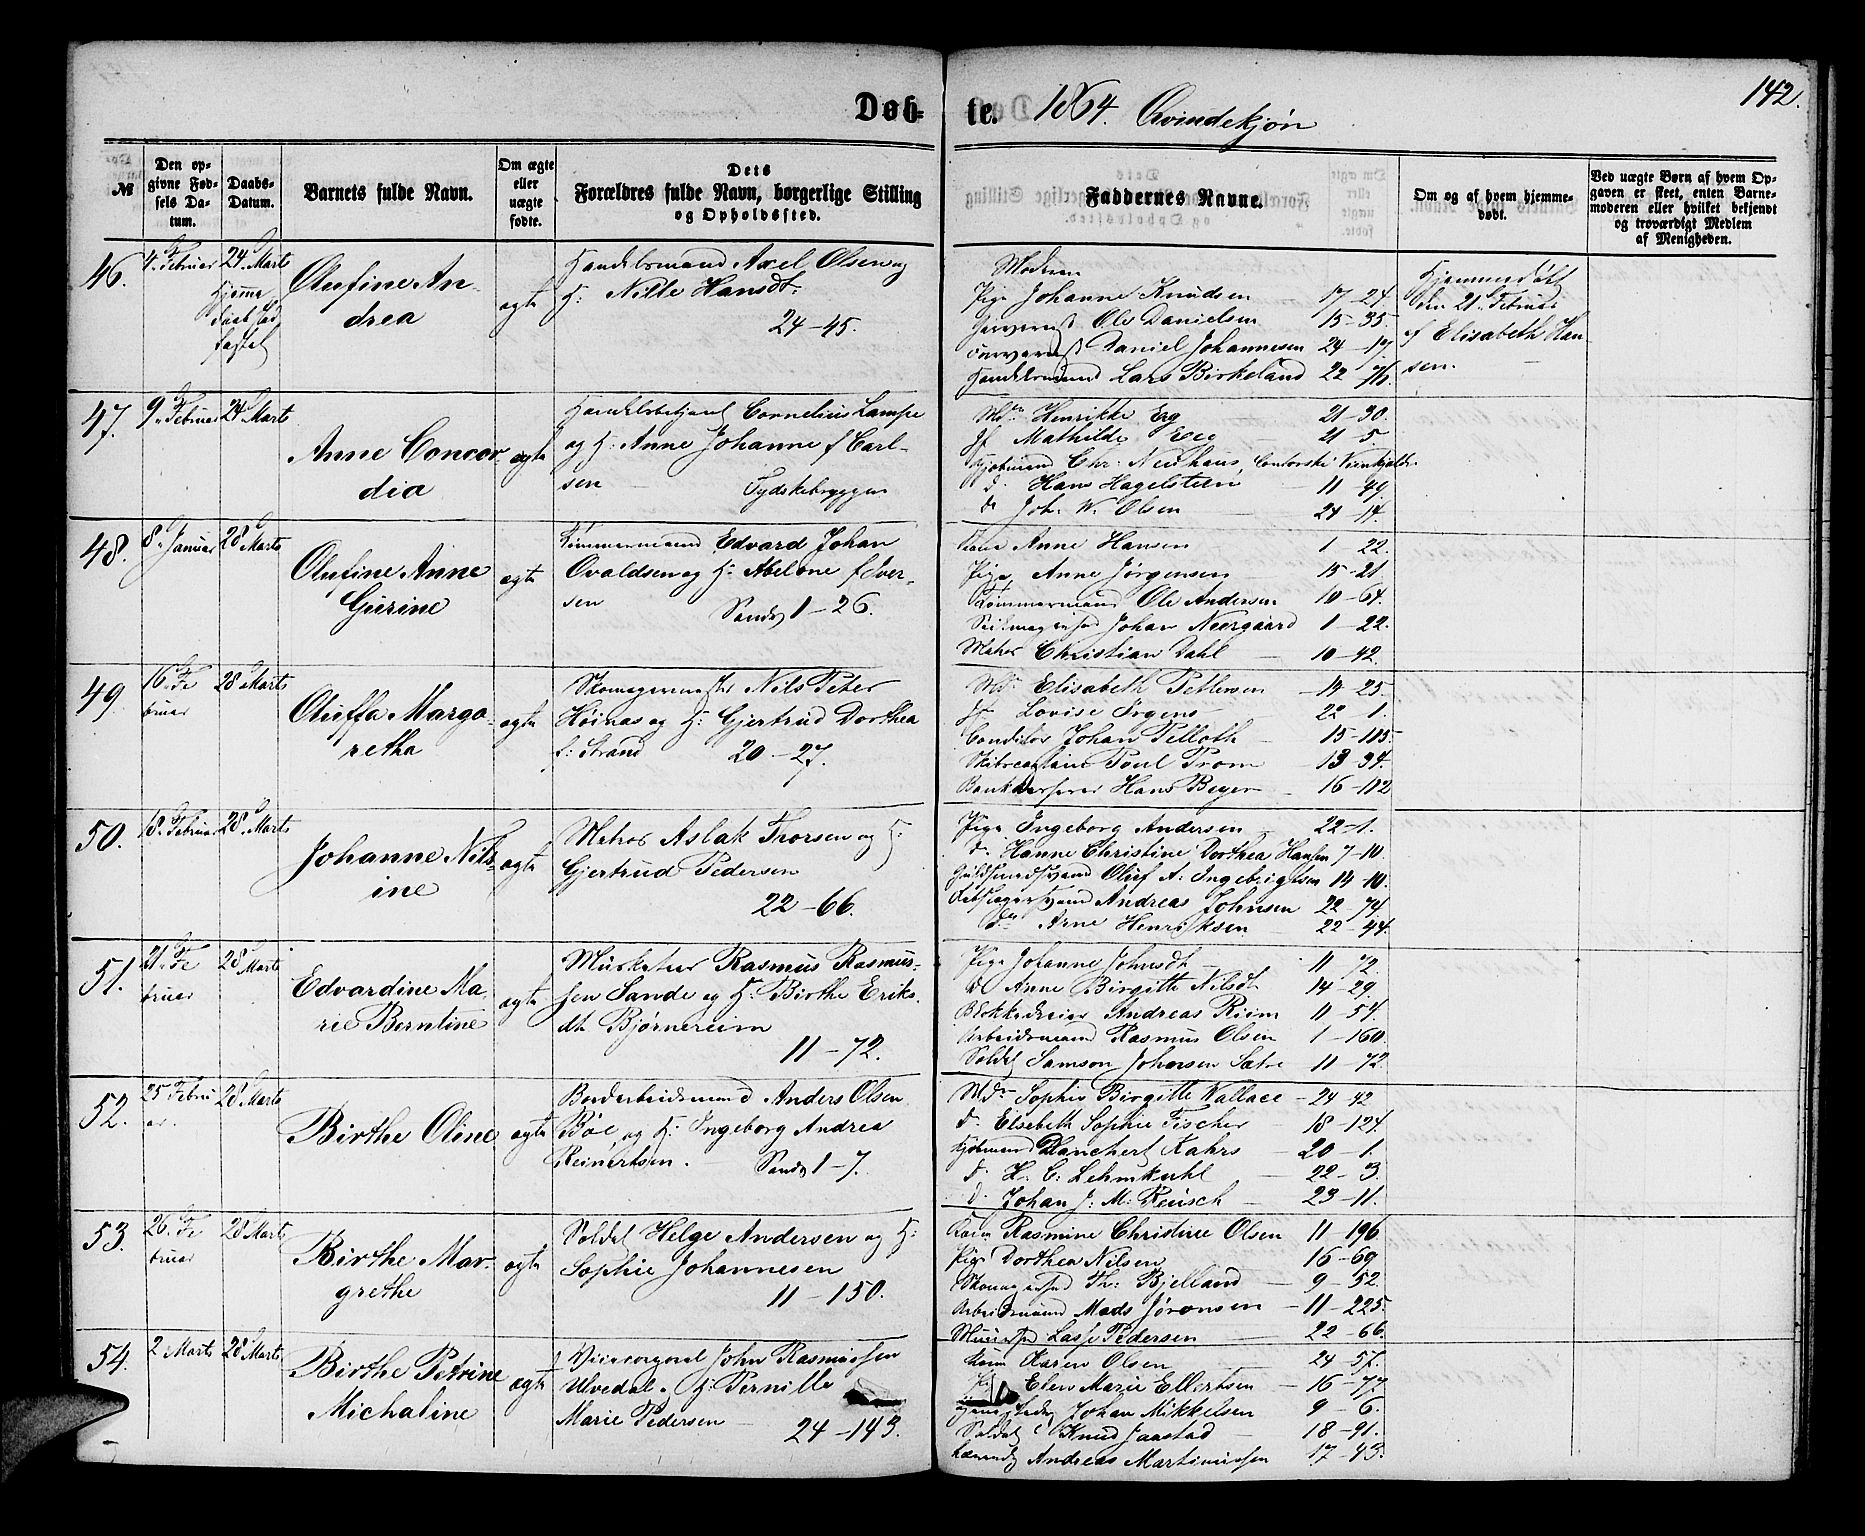 Døbte. 1864. Qvindekjøn
142.
№
Den opgivne Fødsels Datum.
Daabs-Datum.
Barnets fulde Navn.
Om ægte eller uægte fødte.
Dets Forældres fulde Navn, borgerlige Stilling og Opholdssted.
Faddernes Navne.
Om og af hvem hjemmedøbt.
Ved uægte Børn af hvem Opgaven er skeet, enten Barnemoderen eller hvilket bekjendt og troværdigt Medlem af Menigheden.
46. 4. Februar 24 Marts
Hjemme
daab
Olufine An-
drea
ægte
Handelsmand Axel Olsen og
H: Nille Hansdt.
24-45.
Moderen
Pige Johanne Knudsen 17-24.
Ole Danielsen 15-35.
Daniel Johannesen 24-17
Handelsmand Lars Birkeland 22-76.
Hjemmedøbt
den 21. Februar
af Elisabeth Han
sen.
47. 9. Februar 24 Marts
Anne Concor-
dia
ægte
Handelsbetjent Cornelius Lampe
og H: Anne Johanne f Carl-
sen
Tydskebryggen
Md. Henrikke Erg 21-30.
Jf Mathilde 21-5.
Kjøbmand Chr: Neuhaus, Contorski
d. Hans Hagelsteen 11-49.
d. Joh. W. Olsen 24-14.
48. 8. Januar 28 Marts
Olufine Anne
Gurine
ægte
Tømmermand Edvard Johan
Ovaldsen og H: Abelone f Iver-
sen
Sands 1-26.
Anne Hansen 1-22.
Pige Anne Jørgensen 15-21
Tømmermand Ole Andersen 10-64.
Johan Neergaard 1-22.
Matros Christian Dahl 10-42.
49. 16. Fe
bruar
28 Marts
Oluffa Marga-
retha
ægte
Skomagermester Nils Peter
Høinæs og H: Gjertrud Dorthea
f: Strand 20-27.
Md. Elisabeth Pettersen 14-25.
Jf Lovise Irgens 22-1.
Conditor Johan Pelloth 15-185.
Skibscaptain Poul Trom 13-34.
Hans Beyer 16-102
50. 18. Februar 28. Marts
Johanne Nils-
ine
ægte
Matros Aslak Trorsen og H:
Gjertrud Pedersen
22-66.
Pige Ingeborg Andersen 22-1.
d. Hanne Christine Dorthea Hansen 7-10.
Guldsmedsvend Oluf A: Ingebrigtsen 14-10.
Andreas Johnsen 22-74
d. Arne Henriksen 22-44.
51. 21. Fe
bruar
28 Marts
Edvardine Ma-
rie Berntine
ægte
Musketeer Rasmus Rasmus-
sen Sande og H: Birthe Eriks-
dt Bjørnereim
11-72.
Pige Johanne Johnsdt 11-72.
d. Anne Birgitte Nilsdt 14-29
Blokkedreier Andreas Riim 11-54.
Arbeidsmand Rasmus Olsen 1-160.
Soldat Samson Johnsen Sætre 11-72.
52. 25 Febru
ar.
28 Marts
Birthe Oline
ægte
Bordarbeidsmand Anders Olsen
Bøe, og H: Ingeborg Andrea
Reinertsen. Sands 1-7.
Md. Sophie Birgitte Wallace 24-42
d. Elsebeth Sophie Fischer 18-124.
Kjøbmand Blanchert Kahrs 20-1.
d. H. C: Lehmkuhl 22-3.
d. Johan J: M: Reusch 23-11.
53. 26. Fe
bruar
28 Marts
Birthe Mar-
grethe
ægte
Soldat Helge Andersen og H:
Sophie Johannesen
11-150.
Kone Rasmine Christine Olsen 11-196
Pige Dorthea Nilsen 16-69
Th: Bjelland 9-52.
Arbeidsmand Mads Jøronsen 11-225.
Lasse Pedersen 22-66.
54. 2 Marts 28 Marts
Birthe Petrine
Michaline
ægte
Vicecorporal John Rasmussen
Ulvedal. H: Pernille
Marie Pedersen 24-143.
Kone Karen Olsen 24-57.
Elen Marie Ellertsen 16-77
Johan Mikkelsen 9-6.
Soldat Knud Jaastad 18-91.
Andreas Martinussen 17-43.